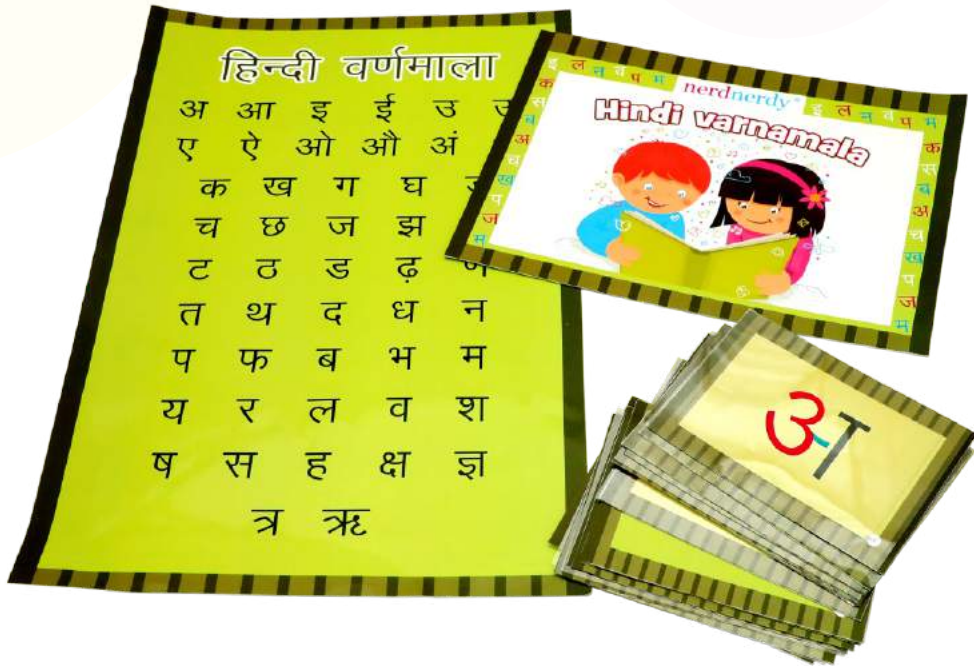 हिन्दी वर्णमाला
अ आ इ ई उ
ए ऐ ओ औ अं
क ख ग घ
च छ ज झ
ट ठ ड ढ़
त थ द ध न
प फ ब भ म
य र ल व श
ष स ह क्ष ज्ञ
त्र ऋ
nerdnerdy
Hindi varnamala
अ